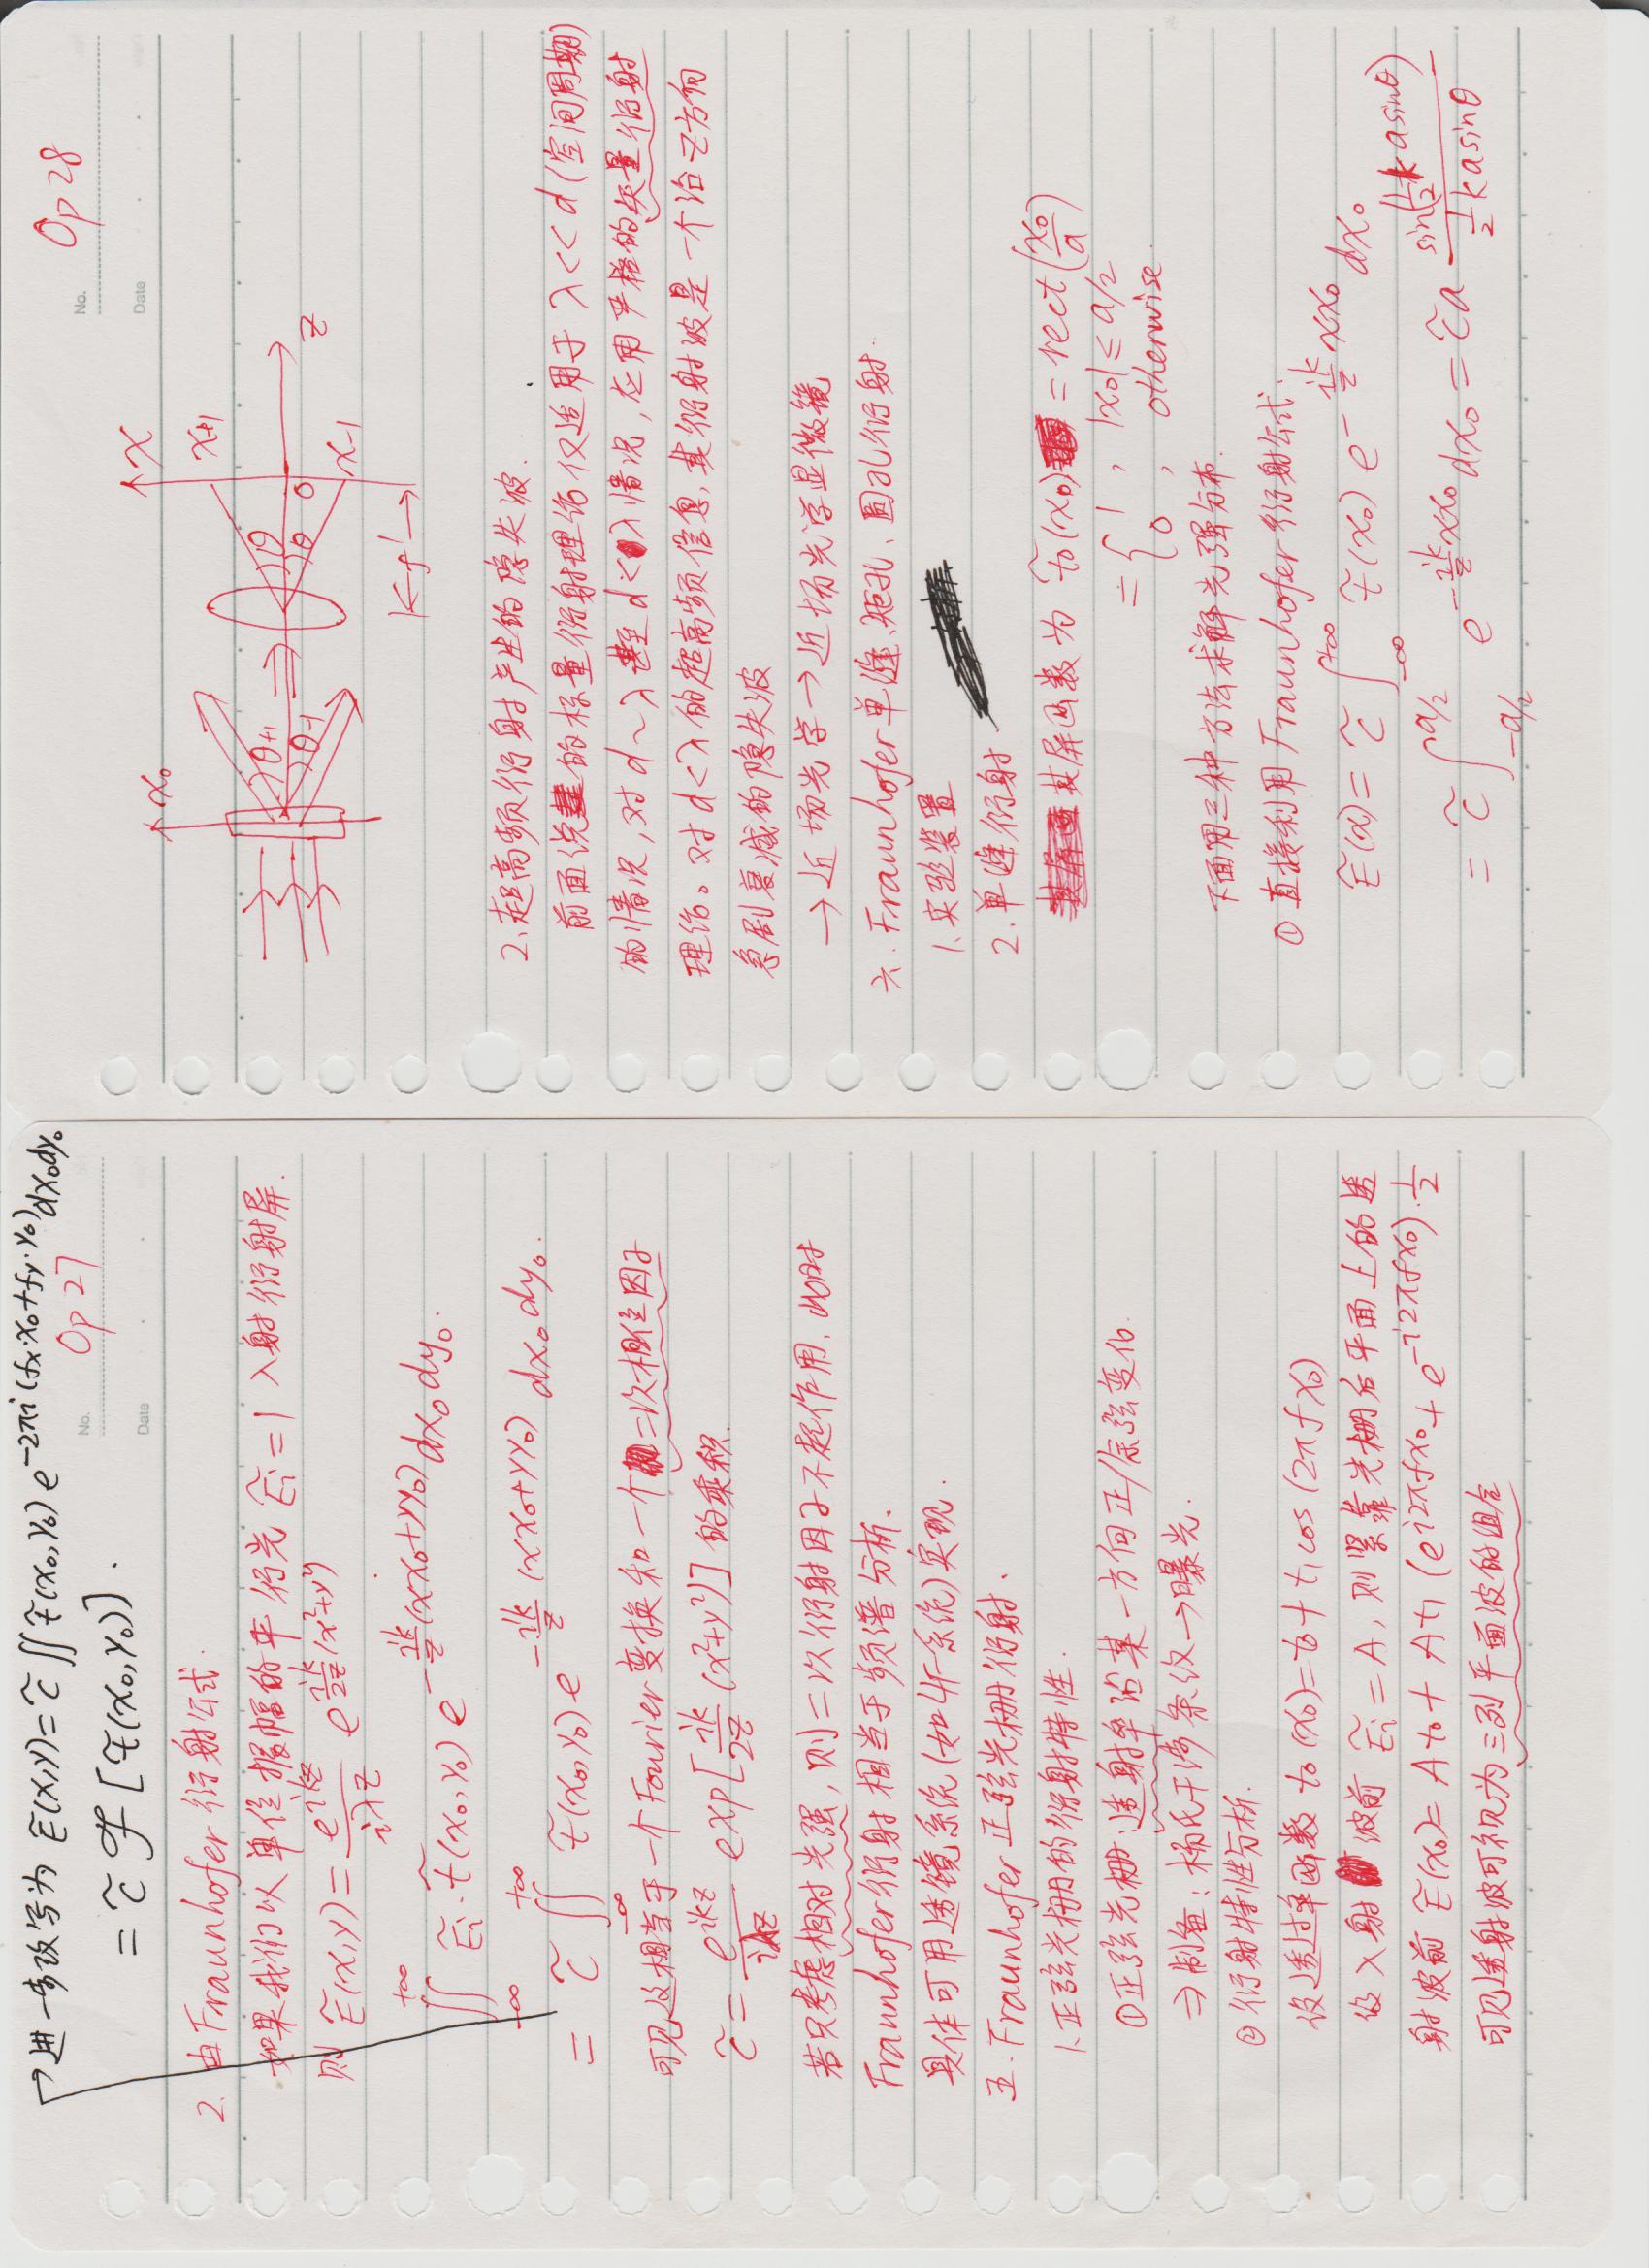 →进一步改写为 Ẽ(x,y)=c̃∬t̃(x₀,y₀)e^{-2πi(fx·x₀+fy·y₀)}dx₀dy₀
No. Op 27
= c̃ ℱ[t̃(x₀,y₀)].
Date
2. 由Fraunhofer衍射公式.
如果我们以单位振幅的平行光 Ẽi=1 入射衍射屏.
则 Ẽ(x,y)= e^{ikz}/(iλz) e^{ik/2z(x²+y²)}
∬_{-∞}^{+∞} Ẽi·t̃(x₀,y₀)e^{-ik/z(xx₀+yy₀)}dx₀dy₀.
= c̃∬_{-∞}^{+∞} t̃(x₀,y₀)e^{-ik/z(xx₀+yy₀)}dx₀dy₀.
可见这相当于一个Fourier变换和一个二次相位因子
c̃= e^{ikz}/(iλz) exp[ik/2z(x²+y²)]的乘积.
若只考虑相对光强,则二次衍射因子不起作用.此时
Fraunhofer衍射相当于频谱分析.
具体可用透镜系统(如4F系统)实现.
五.Fraunhofer正弦光栅衍射.
1.正弦光栅的衍射特性.
①正弦光栅:透射率沿某一方向正/余弦变化.
⇒制备:杨氏干涉条纹→曝光.
②衍射特性分析.
设透过率函数 t₀(x₀)=t₀+t₁cos(2πfx₀)
设入射波前 Ẽi=A,则紧靠光栅后平面上的透
射波前 Ẽ(x₀)=At₀+At₁(e^{i2πfx₀}+e^{-i2πfx₀})·1/2
可见透射波可视为三列平面波的组合
No. Op 28
Date
x₀
x
x+1
θ+1
θ
θ-1
θ
0
z
x-1
|←f'→|
2.超高频衍射产生的隐失波.
前面说的标量衍射理论仅适用于λ<<d(空间周期)
的情况,对d~λ甚至d<λ情况,应用严格的矢量衍射
理论。对d<λ的超高频信息,其衍射波是一个沿z方向
急剧衰减的隐失波
→近场光学→近场光学显微镜
六.Fraunhofer单缝、矩孔、圆孔衍射.
1.实验装置
2.单缝衍射
其屏函数为 t̃₀(x₀)=rect(x₀/a)
={1, |x₀|≤a/2
0, otherwise.
下面用三种方法求解光强分布.
①直接利用Fraunhofer衍射公式.
Ẽ(x)=c̃∫_{-∞}^{+∞} t̃(x₀)e^{-ik/z xx₀}dx₀
=c̃∫_{-a/2}^{a/2} e^{-ik/z xx₀}dx₀=c̃a sin(1/2 k a sinθ)/(1/2 k a sinθ)